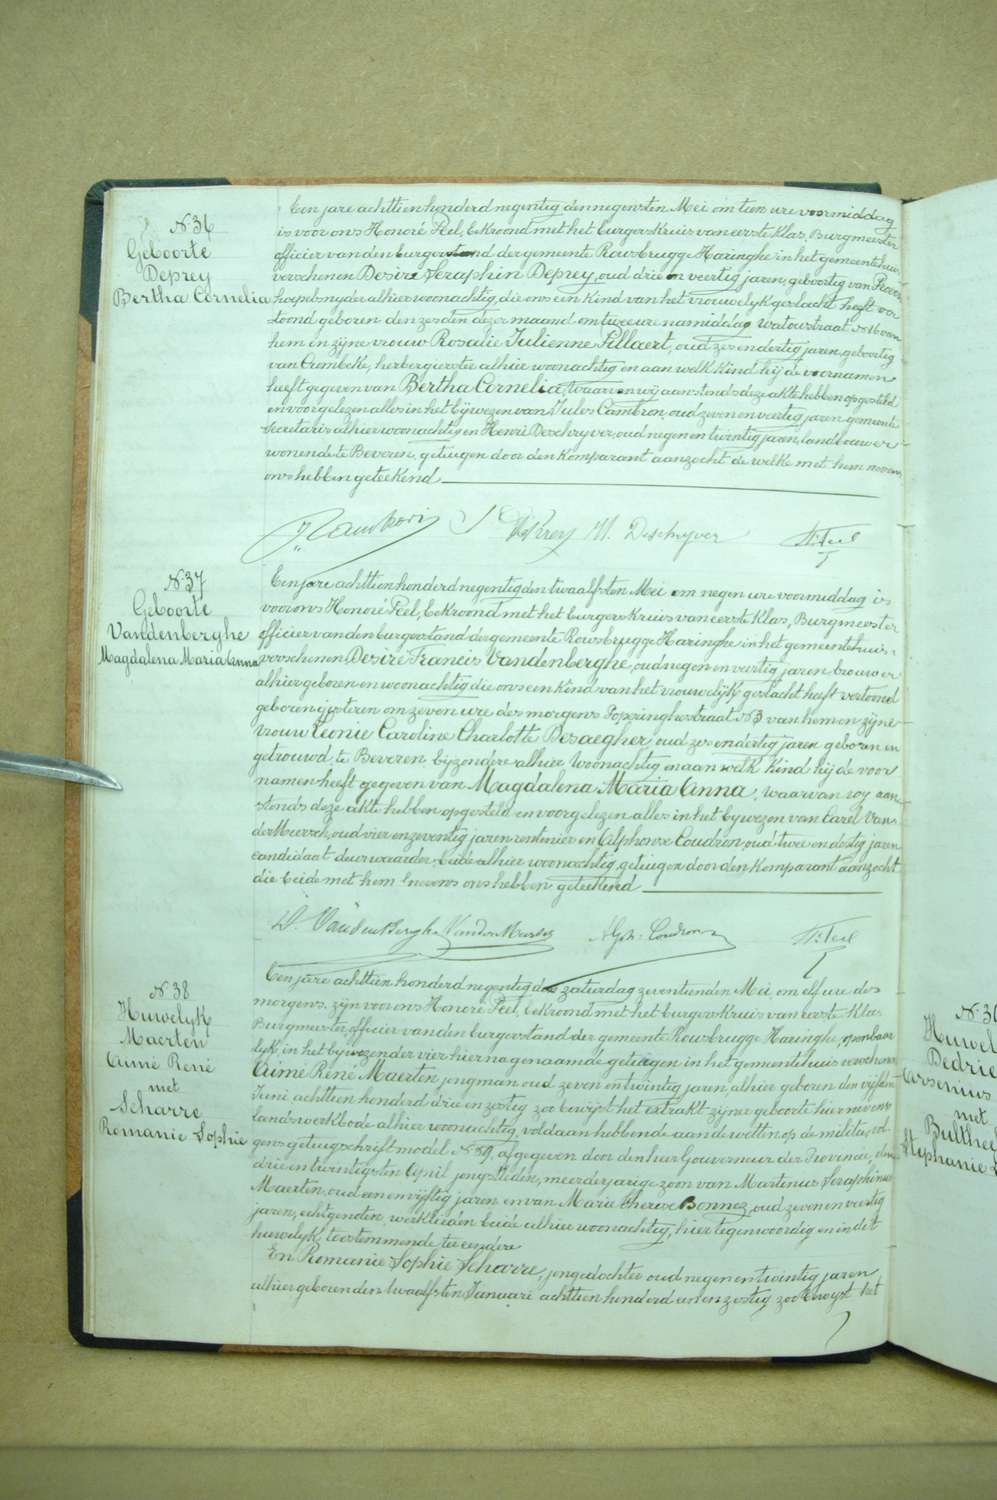 N. 36
Geboorte
Deprey
Bertha Cornelia
Een jare achttien honderd negentig den negensten Mei om tien ure voormiddag
is voor ons Honoré Peel, bekroond met het burgerskruis van eerste klas, Burgmeester
officier van den burgerstand der gemeente Rousbrugge Haringhe in het gemeentehuis
verschenen Desiré Seraphin Deprey, oud drie en veertig jaren, geboortig van Proven
hospelsnyder alhier woonachtig, die ons een kind van het vrouwelyk geslacht heeft ver
toond geboren den zesden dezer maand om twee ure namiddag Watoustraat N. 16 van
hem en zijne vrouw Rosalie Julienne Pillaert, oud zes en dertig jaren, geboortig
van Crombeke, herbergierster alhier woonachtig en aan welk kind hij de voornamen
heeft gegeven van Bertha Cornelia, Waarvan wij aanstonds deze akte hebben opgesteld
en voorgelezen alles in het bijwezen van Jules Cambron, oud zeven en veertig jaren gemeente
secretaris alhier woonachtig en Henri Deschryver, oud negen en twintig jaren, landbouwer
wonende te Beveren, getuigen door den komparant aanzocht de welke met hem nevens
ons hebben geteekend
DePrey H. Deschryver H. Peel
N. 37
Geboorte
Vandenberghe
Magdalena Maria Anna
Een jare achttien honderd negentig den twaalfsten Mei om negen ure voormiddag is
voor ons Honoré Peel, bekroond met het burgerskruis van eerste klas, Burgmeester
officier van den burgerstand der gemeente Rousbrugge Haringhe in het gemeentehuis
verschenen Desiré Francis Vandenberghe, oud negen en veertig jaren, brouwer
alhier geboren en woonachtig die ons een kind van het vrouwelijk geslacht heeft vertoond
geboren gisteren om zeven ure des morgens Poperinghestraat N. 3 van hem en zijne
vrouw Leonie Caroline Charlotte Desaegher, oud zes en dertig jaren geboren en
getrouwd te Beveren bijzondere alhier woonachtig en aan welk kind hij de voor
namen heeft gegeven van Magdalena Maria Anna, waarvan wij aan
stonds deze akte hebben opgesteld en voorgelezen alles in het bijwezen van Carel Van
der Meersch, oud vier en zeventig jaren rentenier en Alphonse Coudron oud twee en dertig jaren
candidaat deurwaarder beide alhier woonachtig, getuigen door den komparant aanzocht
die beide met hem nevens ons hebben geteekend
D. Vandenberghe Vander Meersch Alph. Coudron H. Peel
N. 38
Huwelyk
Maerten
Aimé René
met
Scharre
Romanie Sophie
Een jare achttien honderd negentig den zaturdag zeventienden Mei, om elf ure des
morgens, zijn voor ons Honoré Peel, bekroond met het burgerskruis van eerste klas
Burgmeester, officier van den burgerstand der gemeente Rousbrugge Haringhe, openbaar
lijk, in het bijwezen der vier hierna genaamde getuigen in het gemeentehuis verschenen
Aimé René Maerten jongman oud zeven en twintig jaren, alhier geboren den vijfden
Juni achttien honderd drie en zestig zoo bewijst het extrakt zijner geboorte hier nevens
landswerkbode alhier woonachtig, voldaan hebbende aan de wetten op de militie, vol
gens getuigschrift model N. 59, afgegeven door den heer Gouverneur der Provincie, den
drie en twintigsten April jongstleden, meerderjarige zoon van Martinus Seraphinus
Maerten, oud een en vijftig jaren en van Marie Therese Bonnez, oud zeven en veertig
jaren, echtgenoten, werklieden beide alhier woonachtig, hier tegenwoordig en in dit
huwelijk toestemmende, ter eendere
En Romanie Sophie Scharre, jongedochter oud negen en twintig jaren
alhier geboren den twaalfsten Januari achttien honderd een en zestig zoo bewyst het
N. 3
Huwel
Dedrie
Arsenius
met
Bulthee
Stephanie